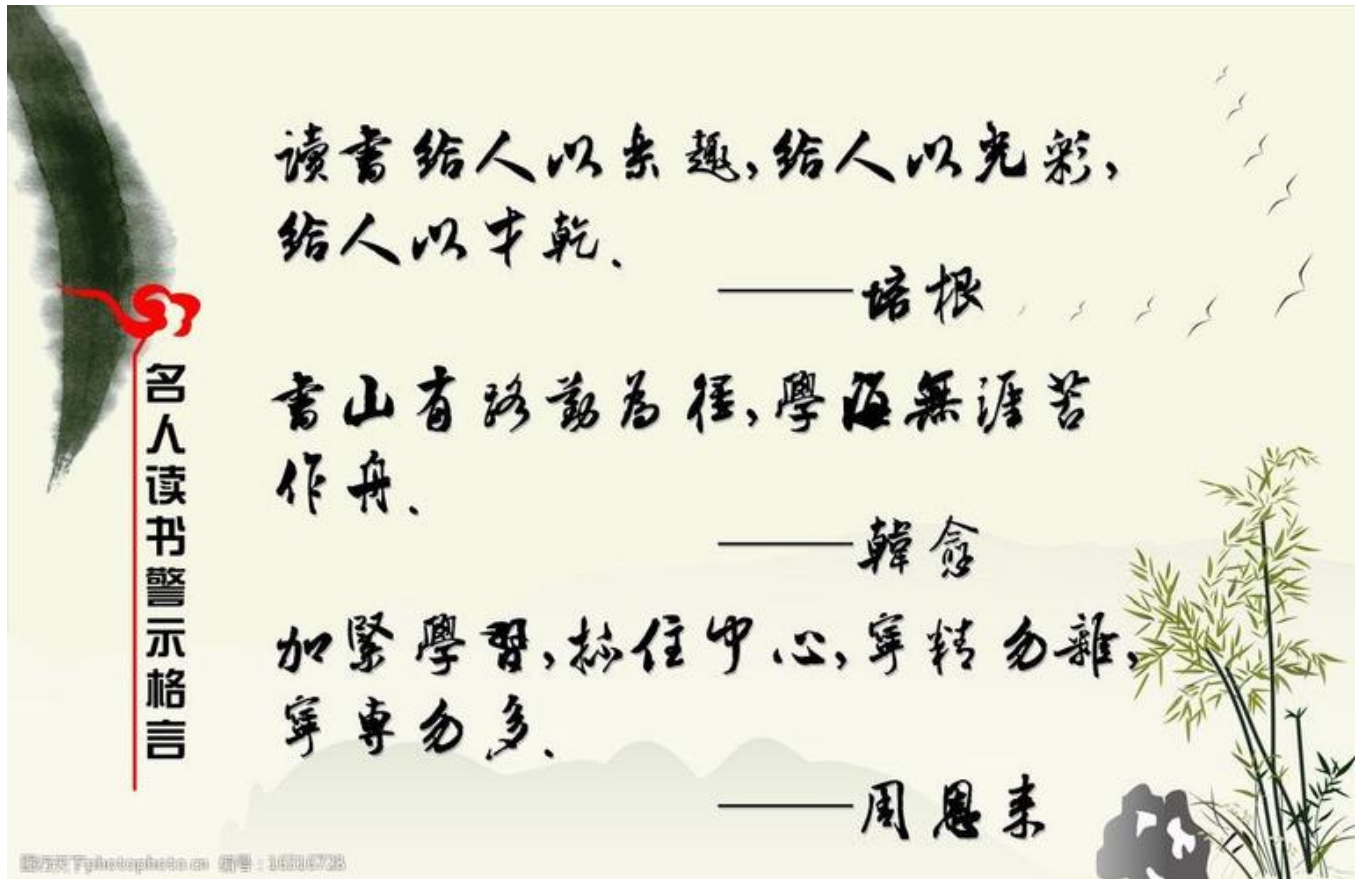 名人读书警示格言
讀書給人以樂趣,給人以光彩,
給人以才乾.
——培根
書山有路勤為徑,學海無涯苦
作舟.
——韓愈
加緊學習,抓住中心,寧精勿雜,
寧專勿多.
——周恩來
图行天下photophoto.cn 编号:16316728